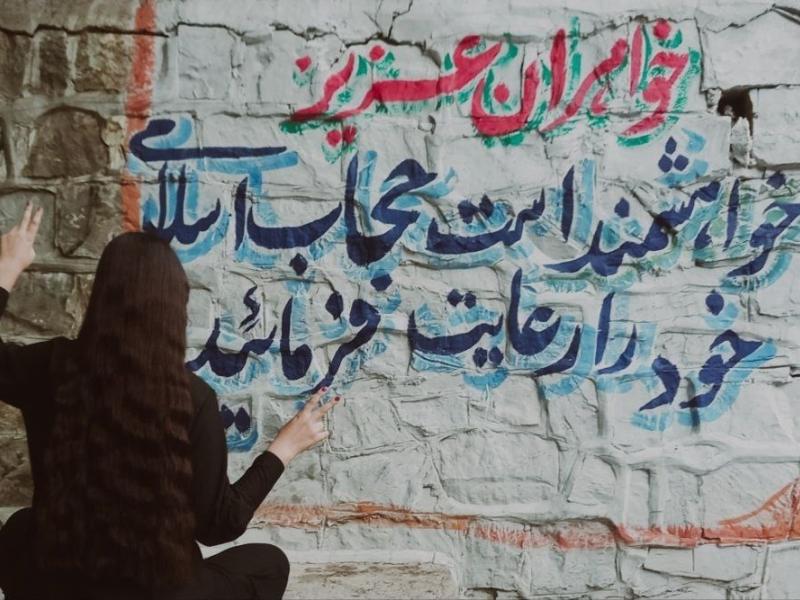 خواهران عزیز
خواهشمند است حجاب اسلامی
خود را رعایت فرمائید